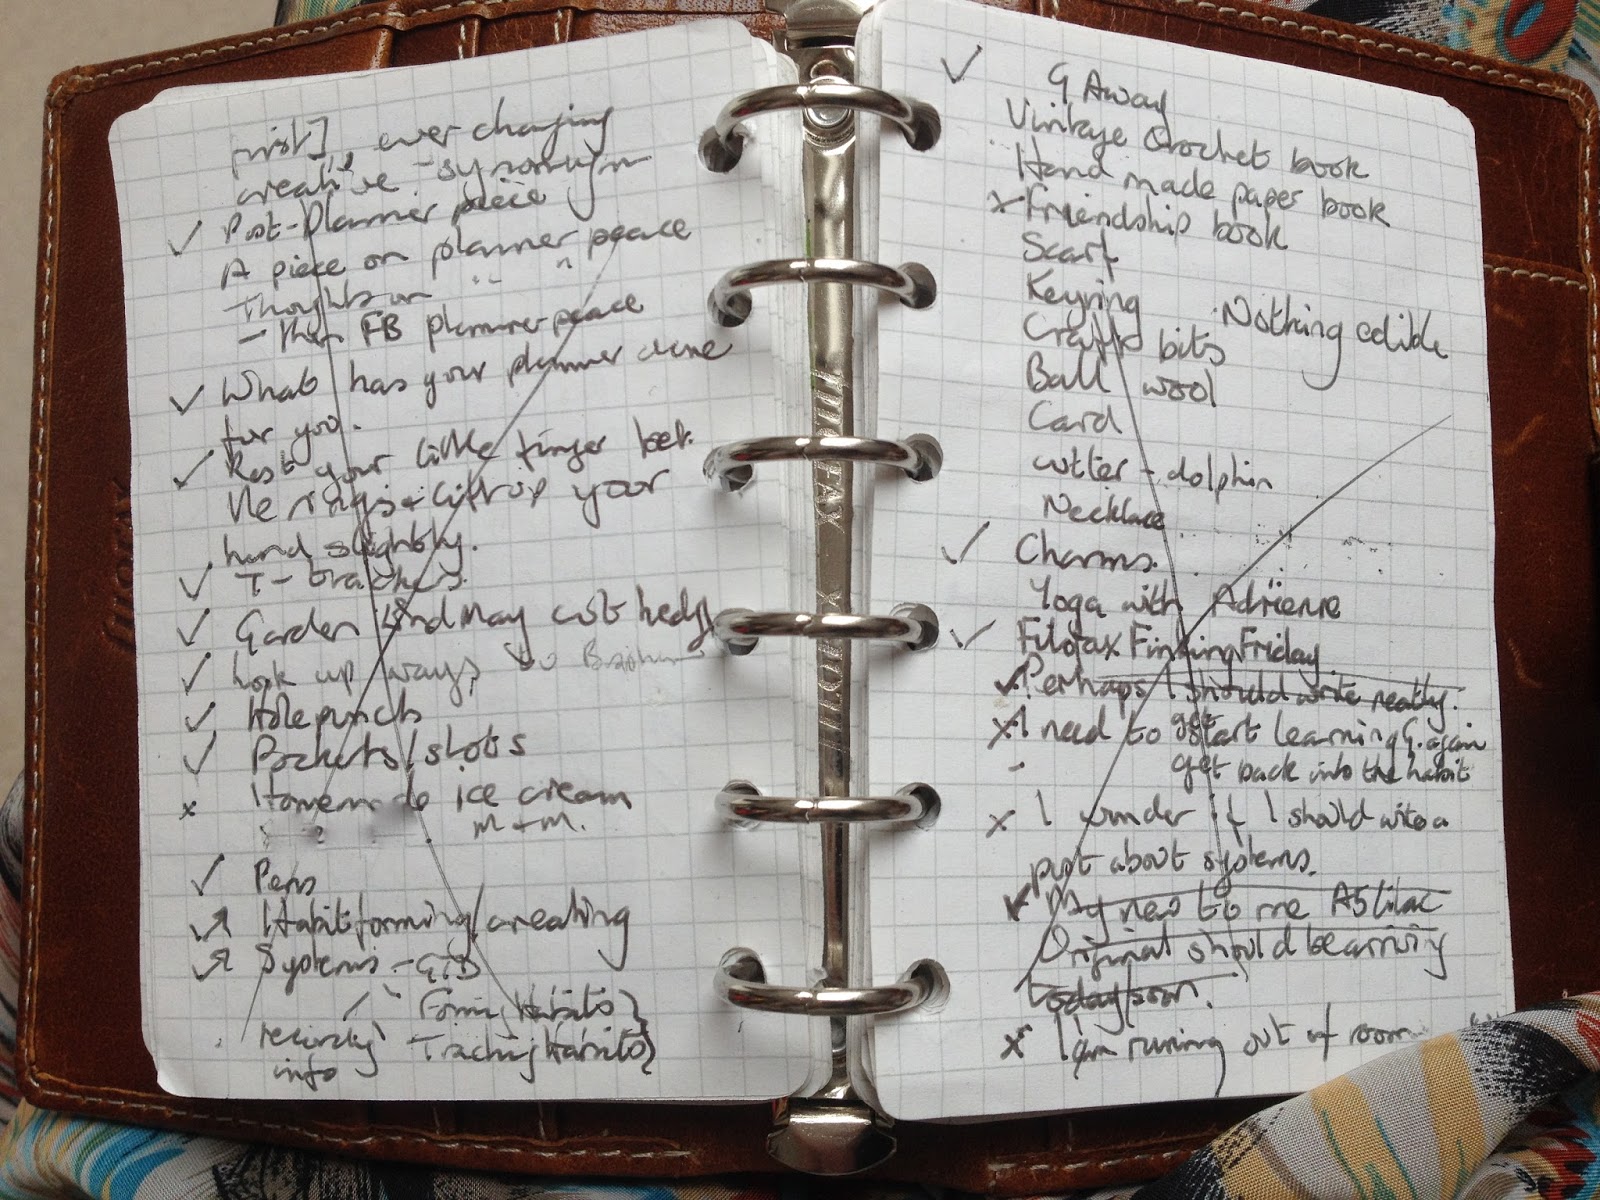 ever changing
creative - synonym
✓ Post-Planner piece
A piece on planner peace
Thoughts on " "
- then FB planner peace
✓ What has your planner done
for you.
✓ Rest your little finger bet.
the rings & lift up your
hand slightly.
✓ T-
✓ Garden end May cut hedge
✓ look up ways to
✓ Hole punch
✓ Pockets/slots
x Homemade ice cream
? m + m.
✓ Pens
Habit forming/creating
Systems - GTD
Forming Habits }
Tracking Habits }
info
✓ G Away
Vintage Crochet book
Hand made paper book
x Friendship book
Scarf
Keyring . Nothing edible
Craft bits
Ball wool
Card
cutter - dolphin
Necklace
✓ Charms.
Yoga with Adriene
✓ Filofax Finking Friday
✓ Perhaps I should write neatly.
x I need to get start learning G. again
- get back into the habit
x I wonder if I should write a
post about systems.
✓ My new to me A5 lilac
Original should be arriving
today/soon.
x I am running out of room
FILOFAX
filofax